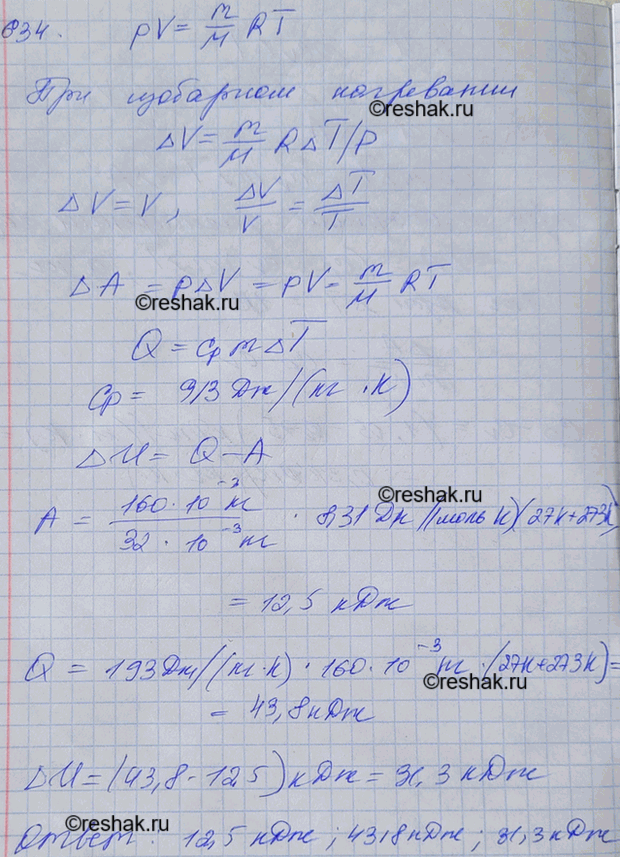 634. pV = m/M RT
При изобарном нагревании
©reshak.ru
ΔV = m/M R ΔT/p
ΔV = V, ΔV/V = ΔT/T
ΔA = pΔV = pV = m/M RT
©reshak.ru
Q = Cp m ΔT
Cp = 913 Дж/(кг·К)
©reshak.ru
ΔU = Q - A
A = 160·10⁻³ кг / 32·10⁻³ кг · 8,31 Дж/(моль К)(27К+273К)
= 12,5 кДж
Q = 193 Дж/(кг·К)·160·10⁻³ кг·(27К+273К) =
©reshak.ru
= 43,8 кДж
ΔU = (43,8 - 12,5) кДж = 31,3 кДж
©reshak.ru
Ответ: 12,5 кДж; 43,8 кДж; 31,3 кДж